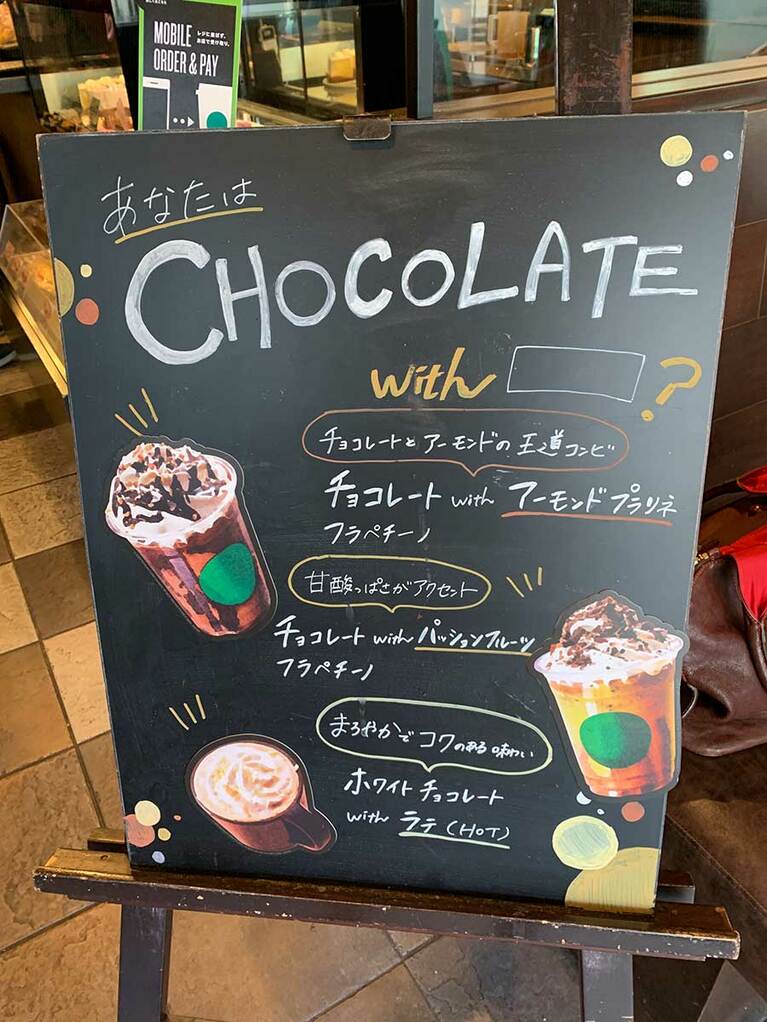 MOBILE
ORDER & PAY
レジに並ばず、
お席で受け取り。
あなたは
CHOCOLATE
with ?
チョコレートとアーモンドの王道コンビ
チョコレート with アーモンドプラリネ
フラペチーノ
甘酸っぱさがアクセント
チョコレート with パッションフルーツ
フラペチーノ
まろやかでコクのある味わい
ホワイトチョコレート
with ラテ(HOT)